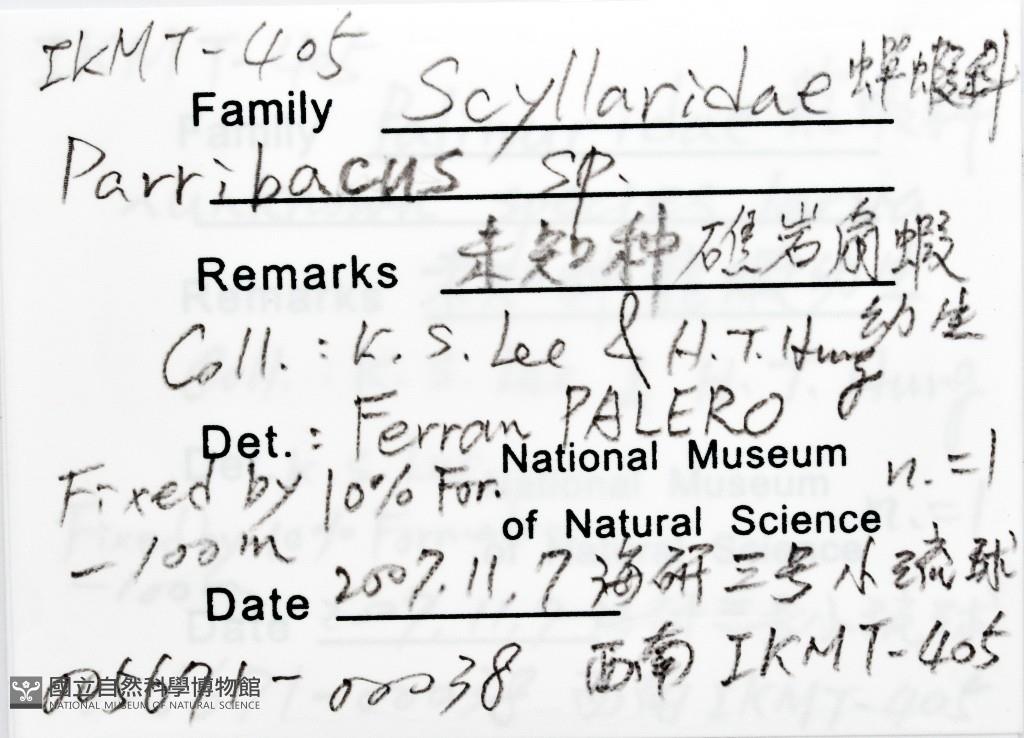 IKMT-405
Family Scyllaridae 蟬蝦科
Parribacus sp.
Remarks 未知种礁岩扇蝦
幼生
Coll. : K. S. Lee & H. T. Hung
Det. : Ferran PALERO
National Museum
n. = 1
Fixed by 10% For.
of Natural Science
-100m
Date 2007. 11. 7 海研三号小琉球
-00038 西南 IKMT-405
國立自然科學博物館
NATIONAL MUSEUM OF NATURAL SCIENCE